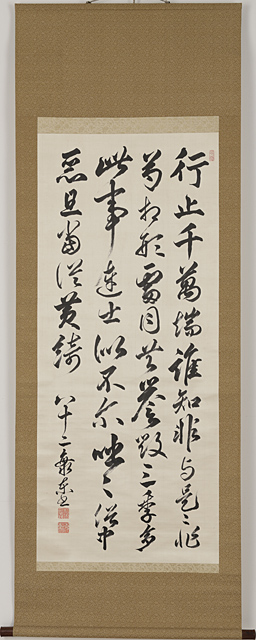 行止千萬端誰知非与是〻非
苟相形雷同共譽毀三季多
此事達士似不尓咄〻俗中
惡且當從黄綺 八十二